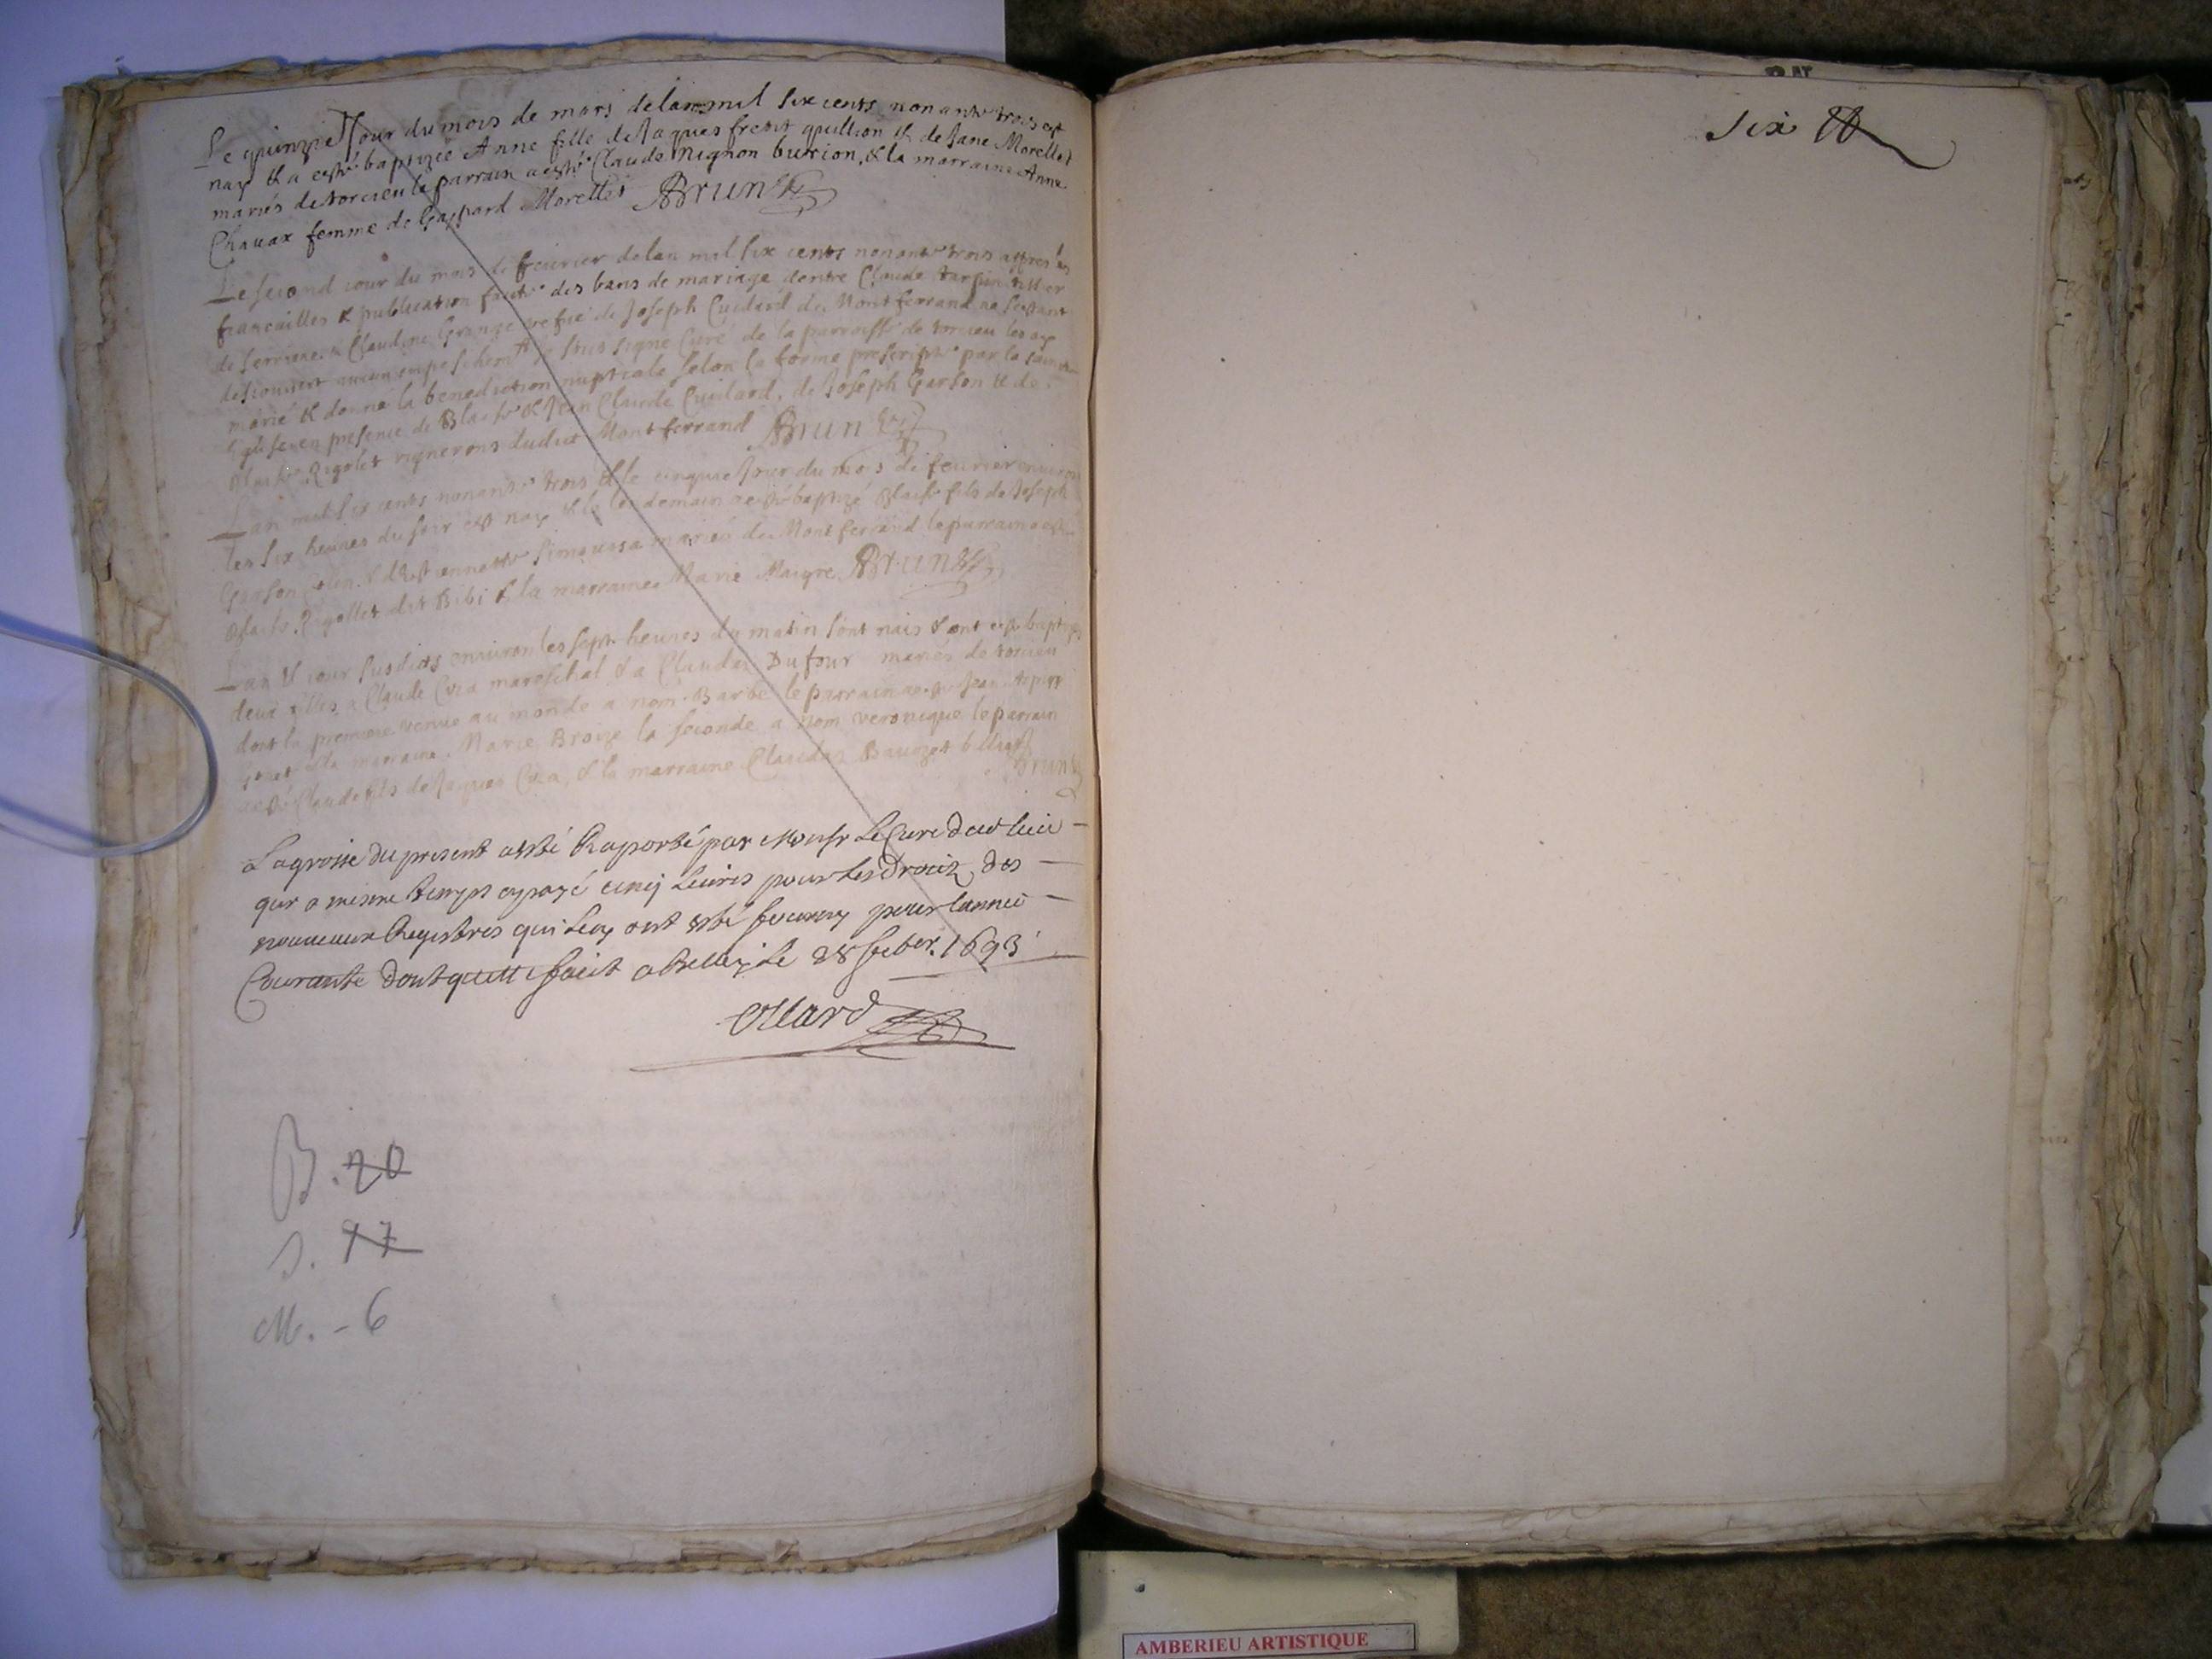 Le quinzie Jour du mois de mars de lan mil six cents nonante trois est
nay & a esté baptizée Anne fille de Jaques frest quillion & de Jane Morellet
mariés de torcieu le parrain a esté Claude Mignon burion, & la marraine Anne
Chauax femme de Gaspard Morellet Brun
Le second iour du mois de feurier de lan mil six cents nonante trois apres les
fiancailles & publication faite des bans de mariage dentre Claude tarpin
de serriere & Claudine Grange de Joseph Cuilard de Montferrand ne sestant
descouuert aucun empeschemt Je sous signe Curé de la parroisse de torcieu les ay
marié & donne la benediction nuptiale selon la forme prescripte par la sainte
Eglise en presence de Blaise & Jean Claude Cuilard, de Joseph Garson & de
Blaise Rigolet vignerons dudict Montferrand Brun
Lan mil six cents nonante trois & le cinquie Jour du mois de feurier enuiron
les six heures du soir est nay & le lendemain a esté baptizé Blaise fils de Joseph
Garson & destiennette simaussa mariés de Montferrand le parrain a esté
Blaise Rigollet dit Bibi & la marraine Marie Maigre Brun
Lan & iour susdicts enuiron les sept heures du matin sont nais & ont esté baptizés
deux filles a Claude Cora mareschal & a Claudaz Dufour mariés de torcieu
dont la premiere venue au monde a nom Barbe le parrain a esté Jean
& la marraine Marie Broize la seconde a nom veronique le parrain
a esté Claude fils de Jaques Cora, & la marraine Claudaz Bauozet
Brun
La grosse du present a esté Raporté par Monsr Le Curé dud lieu
qui a mesme temps a payé cinq Liures pour les Droits des
nouueaux Registres qui luy ont esté fourny pour lannee
Courante dont quitte fait a Belley Le 28 feber. 1693
Ollard
B. 20
S. 17
M. - 6
six
AMBERIEU ARTISTIQUE